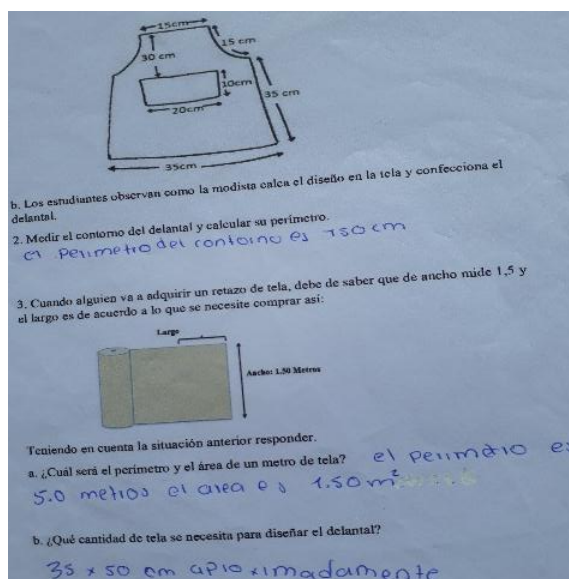 15cm
15 cm
30 cm
10cm
35 cm
20cm
35cm
b. Los estudiantes observan como la modista calca el diseño en la tela y confecciona el
delantal.
2. Medir el contorno del delantal y calcular su perímetro.
el perimetro del contorno es 150 cm
3. Cuando alguien va a adquirir un retazo de tela, debe de saber que de ancho mide 1,5 y
el largo es de acuerdo a lo que se necesite comprar así:
Largo
Ancho: 1.50 Metros
Teniendo en cuenta la situación anterior responder.
a. ¿Cuál será el perímetro y el área de un metro de tela? el perimetro es
5.0 metros el area es 1.50 m²
b. ¿Qué cantidad de tela se necesita para diseñar el delantal?
35 x 50 cm aproximadamente